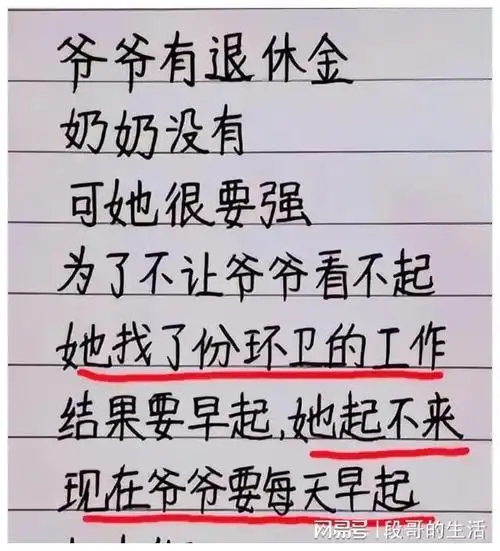 爷爷有退休金
奶奶没有
可她很要强
为了不让爷爷看不起
她找了份环卫的工作
结果要早起,她起不来
现在爷爷要每天早起
网易号 | 段哥的生活